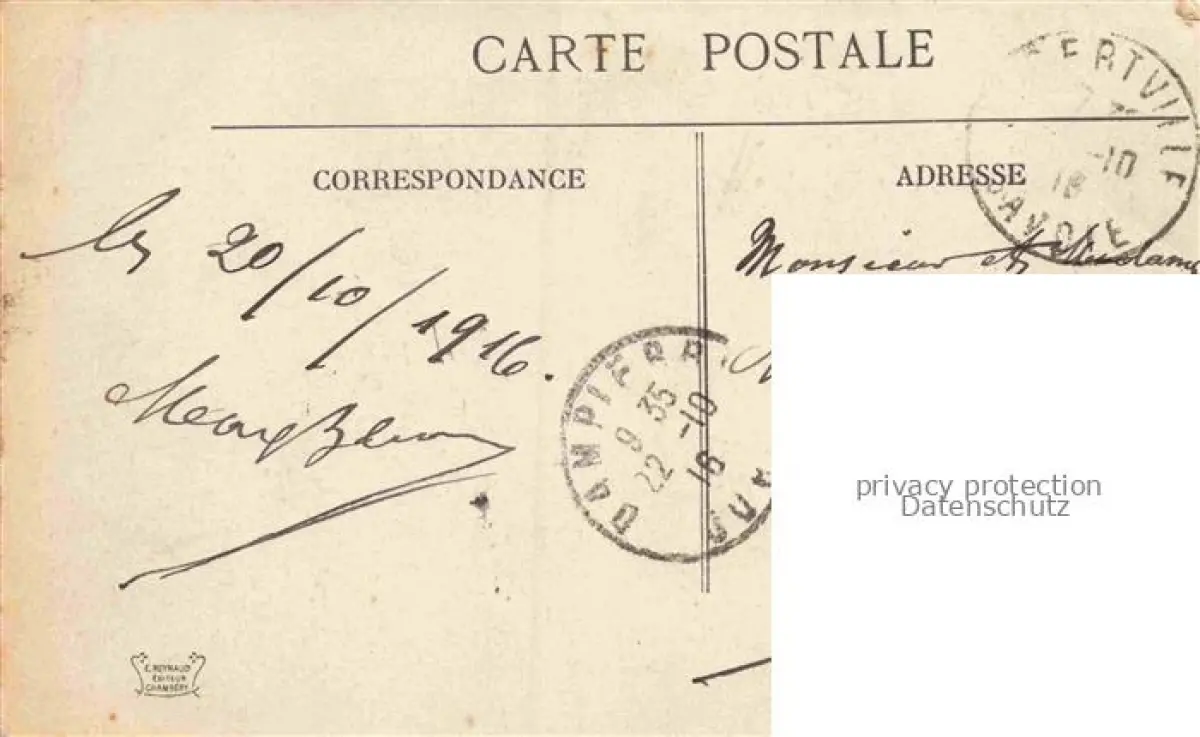 CARTE POSTALE
CORRESPONDANCE
ADRESSE
ERTVILLE
-10
16
SAVOIE
Le 20/10/1916.
Monsieur et Madame
DAMPIERR
9 35
22 -10
16
E. REYNAUD
ÉDITEUR
CHAMBÉRY
privacy protection
Datenschutz